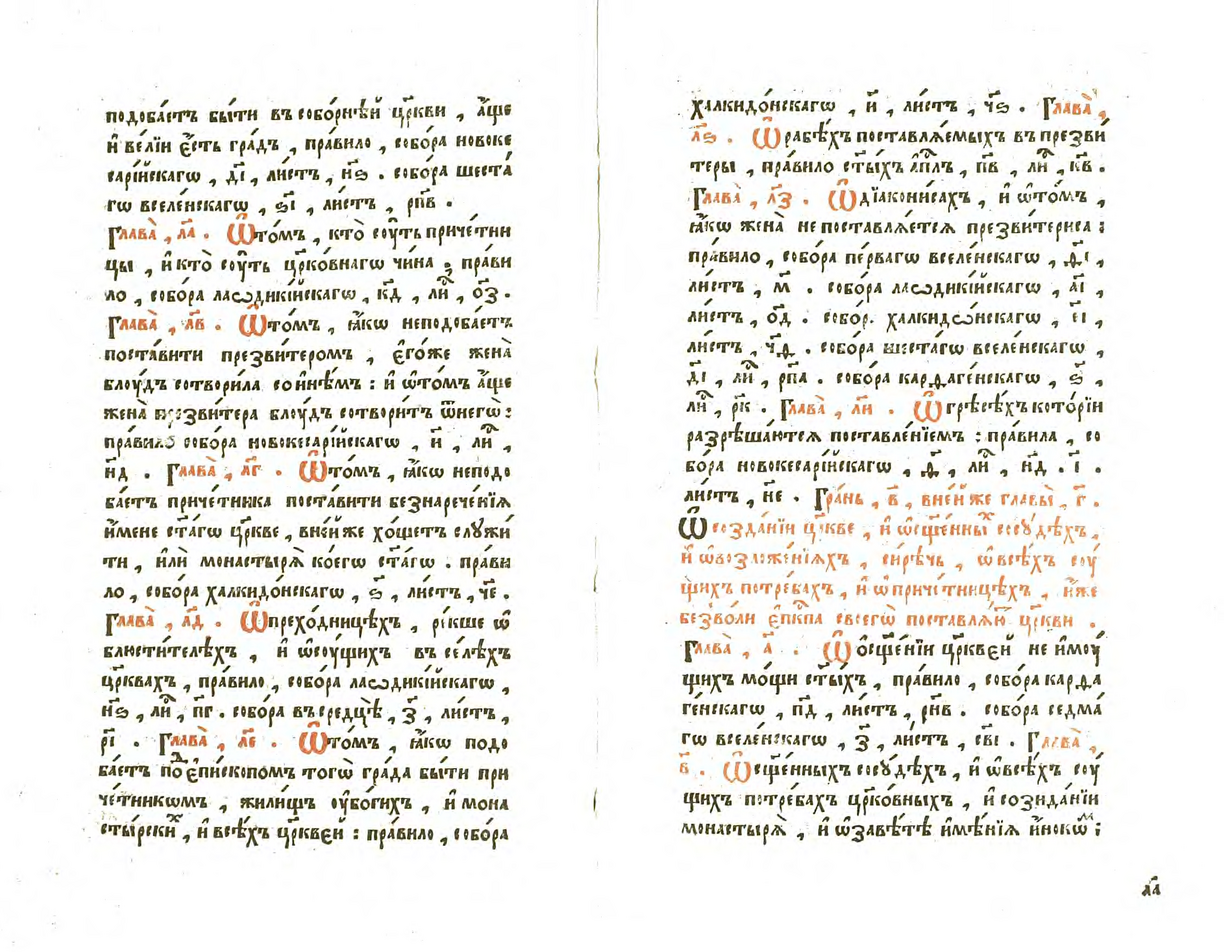 подоба́етъ бы́ти въ собо́рнѣй цр҃кви , а҆́ще
и҆ ве́лїи є҆́сть гра́дъ , пра́вило , собо́ра новоке
сарі́йскагѡ , д҃і , ли́стъ , н҃ѕ . собо́ра шеста́
гѡ вселе́нскагѡ , ѕ҃і , ли́стъ , рп҃в .
Глава̀ , л҃а . Ѽ то́мъ , кто̀ сꙋ́ть приче́тни
цы , и҆ кто̀ сꙋ́ть цр҃ко́внагѡ чи́на ; пра́ви
ло , собо́ра лаѡдикі́йскагѡ , к҃д , лиⷭ҇ , о҃з .
Глава̀ , л҃в . Ѽ то́мъ , ꙗ҆́кѡ неподоба́етъ
поста́вити презви́теромъ , є҆го́же жена̀
блꙋ́дъ сотвори́ла со и҆нѣ́мъ : и҆ ѡ҆ то́мъ а҆́ще
жена̀ презви́тера блꙋ́дъ сотвори́тъ ѿ него̀ :
пра́вило собо́ра новокесарі́йскагѡ , и҃ , лиⷭ҇ ,
н҃д . Глава̀ , л҃г . Ѽ то́мъ , ꙗ҆́кѡ неподо
ба́етъ приче́тника поста́вити без̾ нарече́нїѧ
и҆́мене ст҃а́гѡ цр҃кве , в не́йже хо́щетъ слꙋжи́
ти , и҆лѝ монастырѧ̀ ко́егѡ ст҃а́гѡ . пра́ви
ло , собо́ра халкидо́нскагѡ , ѕ҃ , ли́стъ , ч҃е .
Глава̀ , л҃д . Ѽ прехо́дницѣхъ , ре́кше ѡ҆
блюсти́телѣхъ , и҆ ѡ҆ сꙋ́щихъ въ се́лѣхъ
цр҃квахъ , пра́вило , собо́ра лаѡдикі́йскагѡ ,
н҃ѕ , лиⷭ҇ , п҃г . собо́ра въ средцѣ̀ , з҃ , ли́стъ ,
р҃і . Глава̀ , л҃е . Ѽ то́мъ , ꙗ҆́кѡ подо
ба́етъ поⷣ є҆пи́скопомъ тогѡ̀ гра́да бы́ти при
че́тникѡмъ , жили́щъ ᲂу҆бо́гихъ , и҆ мона
сты́рскиⷯ , и҆ всѣ́хъ цр҃кве́й : пра́вило , собо́ра
халкидо́нскагѡ , и҃ , ли́стъ , ч҃ѕ . Глава̀ ,
л҃ѕ . Ѽ рабѣ́хъ поставлѧ́емыхъ въ презви́
теры , пра́вило ст҃ы́хъ а҆пⷭ҇лъ , п҃в , лиⷭ҇ , к҃в .
Глава̀ , л҃з . Ѽ дїакони́сахъ , и҆ ѡ҆ то́мъ ,
ꙗ҆́кѡ жена̀ не поставлѧ́етсѧ презви́териса :
пра́вило , собо́ра пе́рвагѡ вселе́нскагѡ , ѳ҃і ,
ли́стъ , м҃ . собо́ра лаѡдикі́йскагѡ , а҃і ,
ли́стъ , о҃д . собо́р. халкидѡ́нскагѡ , е҃і ,
ли́стъ , ч҃ѳ . собо́ра шеста́гѡ вселе́нскагѡ ,
д҃і , лиⷭ҇ , рп҃а . собо́ра карѳаге́нскагѡ , ѕ҃ ,
лиⷭ҇ , р҃к . Глава̀ , л҃и . Ѽ грѣсѣ́хъ кото́рїи
разрѣша́ютсѧ поставле́нїемъ : пра́вила , со
бо́ра новокесарі́йскагѡ , ѳ҃ , лиⷭ҇ , н҃д . і҃ .
ли́стъ , н҃е . Гра́нь , в҃ , в не́йже главы̀ , г҃ .
Ѽ созда́нїи цр҃кве , и҆ ѡ҆ сщ҃е́нныⷯ сосꙋ́дѣхъ ,
и҆ ѡ҆ возложе́нїѧхъ , си́рѣчь , ѡ҆ всѣ́хъ сꙋ́
щихъ потре́бахъ , и҆ ѡ҆ приче́тницѣхъ , и҆̀же
без̾ во́ли є҆пкⷭ҇па своегѡ̀ поставлѧ́ю цр҃кви .
Глава̀ , а҃ . Ѽ ѡсщ҃е́нїи цр҃кве́й не и҆мꙋ́
щихъ мо́щи ст҃ы́хъ , пра́вило , собо́ра карѳа
ге́нскагѡ , п҃д , ли́стъ , рн҃в . собо́ра седма́
гѡ вселе́нскагѡ , з҃ , ли́стъ , св҃і . Глава̀ ,
в҃ . Ѽ сщ҃е́нныхъ сосꙋ́дѣхъ , и҆ ѡ҆ всѣ́хъ сꙋ́
щихъ потре́бахъ цр҃ко́вныхъ , и҆ созида́нїи
монастырѧ̀ , и҆ ѡ҆ завѣ́тѣ и҆мѣ́нїѧ и҆́нокѡⷨ ;
л҃а